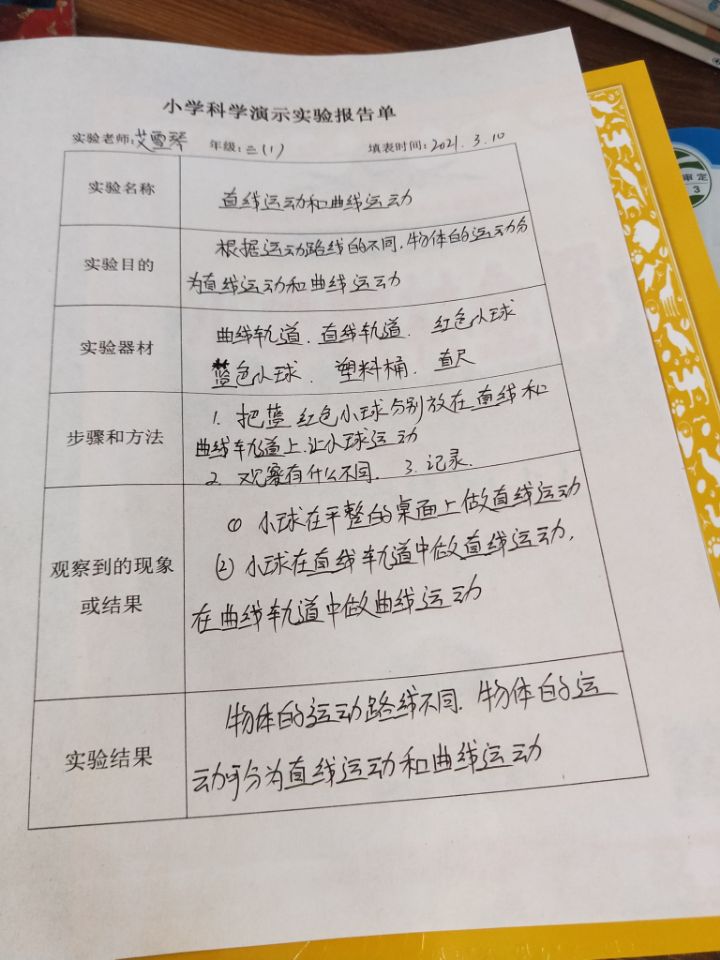 小学科学演示实验报告单
实验老师:艾雪琴 年级:三(1) 填表时间:2021.3.10
实验名称
直线运动和曲线运动
实验目的
根据运动路线的不同,物体的运动分
为直线运动和曲线运动
实验器材
曲线轨道、直线轨道、红色小球
蓝色小球、塑料桶、直尺
步骤和方法
1. 把蓝 红色小球分别放在直线和
曲线轨道上,让小球运动
2. 观察有什么不同. 3. 记录.
观察到的现象
或结果
① 小球在平整的桌面上做直线运动
② 小球在直线轨道中做直线运动,
在曲线轨道中做曲线运动
实验结果
物体的运动路线不同,物体的运
动可分为直线运动和曲线运动
审定
3